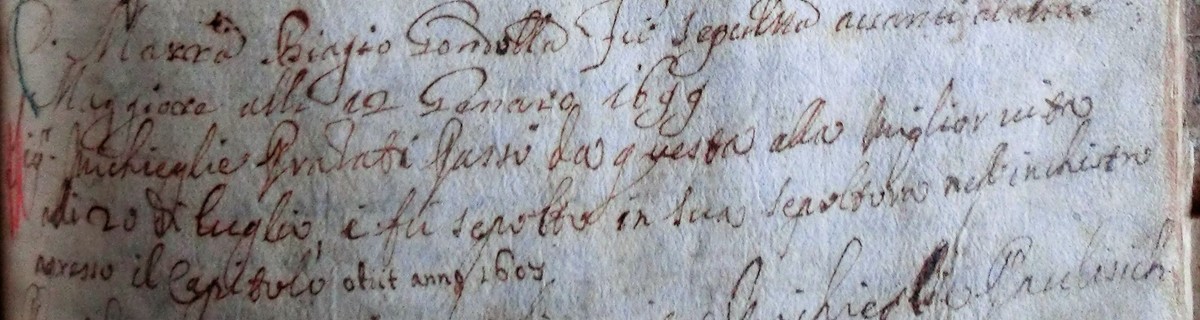 D. Marra Biagio Gondolla fù sepulta avanti altar
Maggiore alli 12 Genaro 1699
Michieglie Pratati Passò da questa alla miglior vita
adi 20 di luglio, e fù sepolto in sua sepoltura nell'inchiostro
apresso il Capitolo obiit anno 1607
Michieglie Paulisich